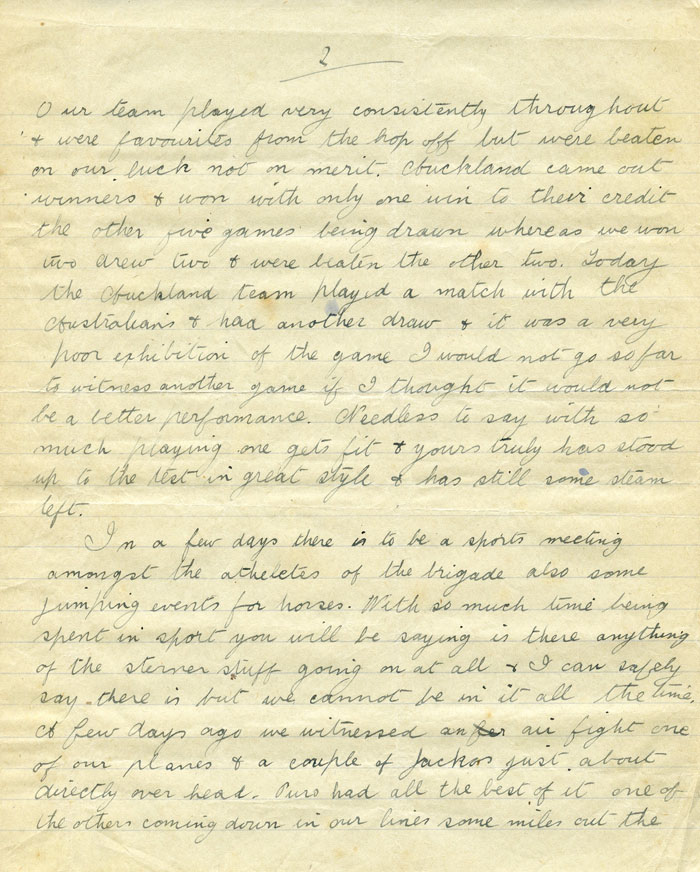 2
Our team played very consistently throughout
& were favourites from the hop off but were beaten
on our luck not on merit. Auckland came out
winners & won with only one win to their credit
the other five games being drawn whereas we won
two drew two & were beaten the other two. Today
the Auckland team played a match with the
Australians & had another draw & it was a very
poor exhibition of the game I would not go so far
to witness another game if I thought it would not
be a better performance. Needless to say with so
much playing one gets fit & yours truly has stood
up to the test in great style & has still some steam
left.
In a few days there is to be a sports meeting
amongst the atheletes of the brigade also some
jumping events for horses. With so much time being
spent in sport you will be saying is there anything
of the sterner stuff going on at all & I can safely
say there is but we cannot be in it all the time.
A few days ago we witnessed an air fight one
of our planes & a couple of Jackos just about
directly over head. Ours had all the best of it one of
the others coming down in our lines some miles out the